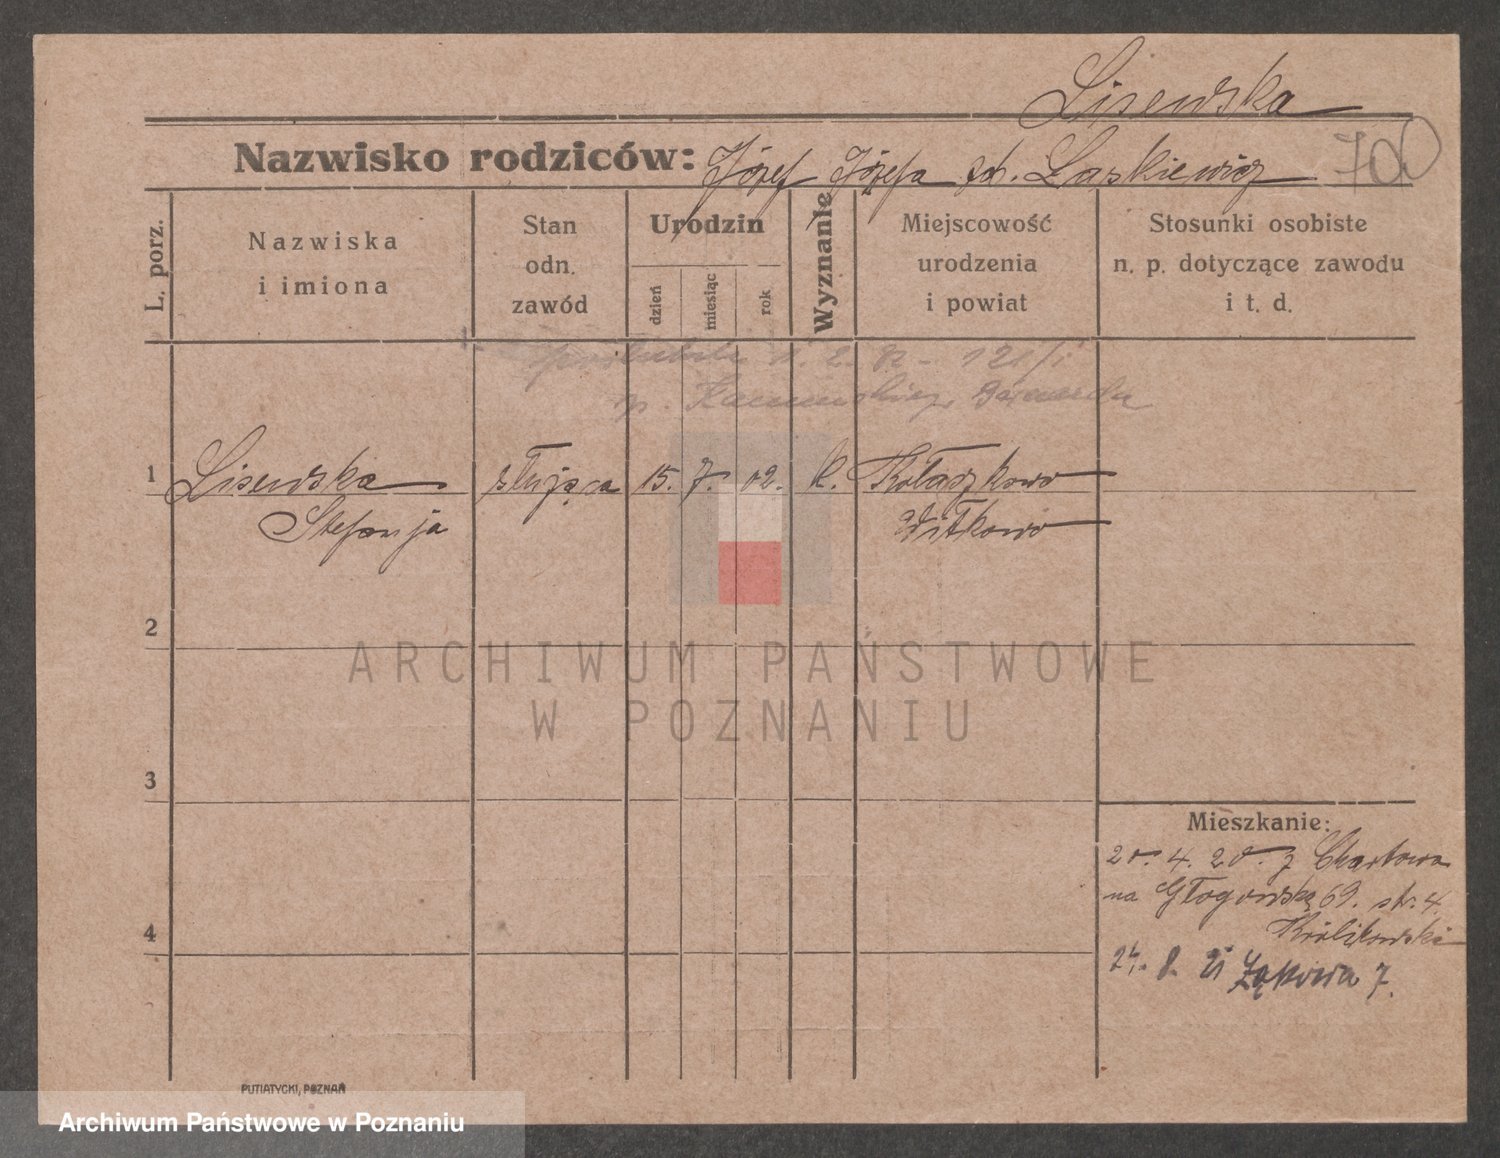 Lisewska
Nazwisko rodziców: Józef Józefa zd. Laskiewicz 700
L. porz.
Nazwiska
i imiona
Stan
odn.
zawód
Urodzin
dzień
miesiąc
rok
Wyznanie
Miejscowość
urodzenia
i powiat
Stosunki osobiste
n. p. dotyczące zawodu
i t. d.
1 Lisewska służąca 15. 7. 02. k. Kołaszkowo
Stefanja Witkowo
2
ARCHIWUM PAŃSTWOWE
W POZNANIU
3
Mieszkanie:
20. 4. 20. z Chartowa
na Głogowską 69. str. 4.
Królikowski
4
24. 8. 21 Łąkowa 7.
PUTIATYCKI, POZNAŃ
Archiwum Państwowe w Poznaniu